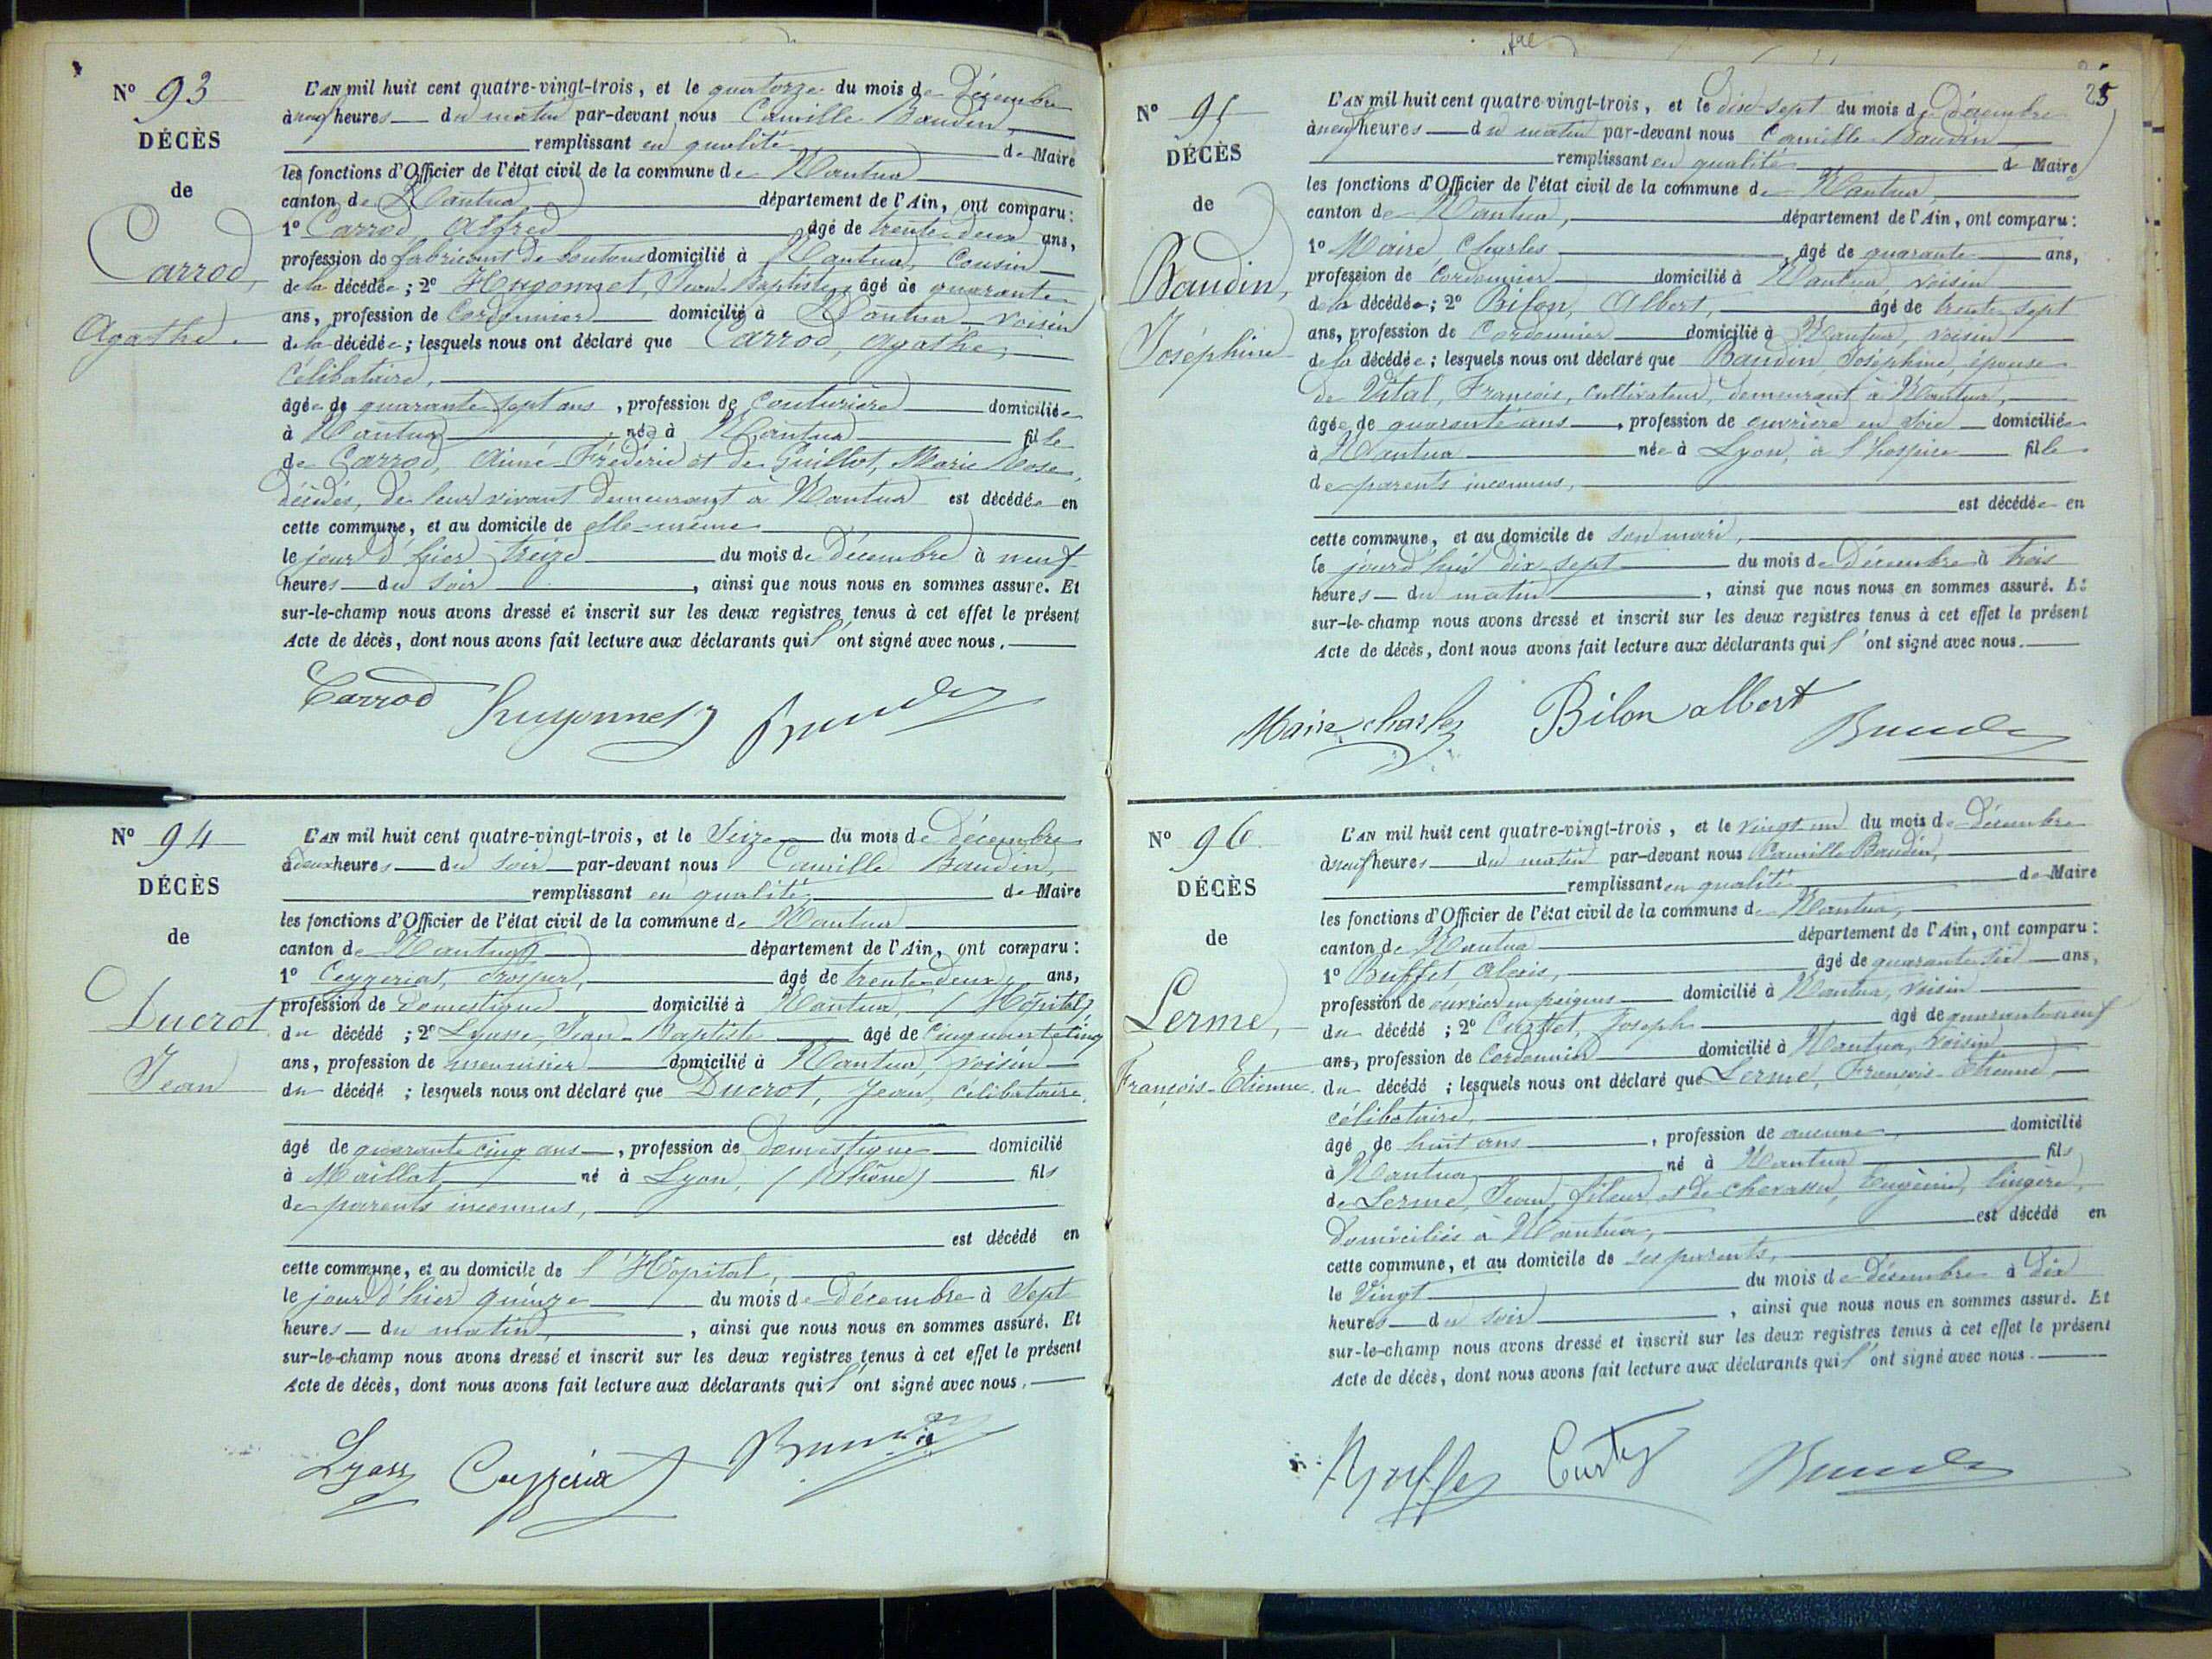 N° 93
DÉCÈS
de
Carrod,
Agathe.
L'AN mil huit cent quatre-vingt-trois, et le quatorze du mois de Décembre
à neuf heures du matin par-devant nous Camille Baudin,
remplissant en qualité de Maire
les fonctions d'Officier de l'état civil de la commune de Nantua
canton de Nantua, département de l'Ain, ont comparu :
1° Carrod, Alfred âgé de trente-deux ans,
profession de fabricant de boutons domicilié à Nantua, Cousin
de la décédée ; 2° Hugonnet, Jean-Baptiste, âgé de quarante
ans, profession de Cordonnier domicilié à Nantua voisin
de la décédée ; lesquels nous ont déclaré que Carrod, Agathe,
Célibataire,
âgée de quarante sept ans, profession de Couturière domiciliée
à Nantua, née à Nantua fille
de Carrod, Aimé-Frédéric et de Guillot, Marie Rose,
décédés, de leur vivant demeurant à Nantua est décédée en
cette commune, et au domicile de elle-même
le jour d'hier treize du mois de décembre à neuf
heures du soir, ainsi que nous nous en sommes assuré. Et
sur-le-champ nous avons dressé et inscrit sur les deux registres tenus à cet effet le présent
Acte de décès, dont nous avons fait lecture aux déclarants qui l'ont signé avec nous.
Carrod Hugonnet
N° 94
DÉCÈS
de
Ducrot
Jean
L'AN mil huit cent quatre-vingt-trois, et le Seize du mois de décembre
à deux heures du soir par-devant nous Camille Baudin,
remplissant en qualité de Maire
les fonctions d'Officier de l'état civil de la commune de Nantua
canton de Nantua département de l'Ain, ont comparu :
1° Ceyzeriat, Prosper, âgé de trente-deux ans,
profession de Domestique domicilié à Nantua, (Hôpital)
du décédé ; 2° Lyasse, Jean-Baptiste âgé de Cinquante cinq
ans, profession de menuisier domicilié à Nantua, voisin
du décédé ; lesquels nous ont déclaré que Ducrot, Jean, célibataire,
âgé de quarante cinq ans, profession de domestique domicilié
à Maillat, né à Lyon, (Rhône) fils
de parents inconnus,
est décédé en
cette commune, et au domicile de l'Hôpital,
le jour d'hier quinze du mois de Décembre à Sept
heures du matin, ainsi que nous nous en sommes assuré. Et
sur-le-champ nous avons dressé et inscrit sur les deux registres tenus à cet effet le présent
Acte de décès, dont nous avons fait lecture aux déclarants qui l'ont signé avec nous.
25
N° 95
DÉCÈS
de
Baudin,
Joséphine
L'AN mil huit cent quatre-vingt-trois, et le dix-sept du mois de décembre
à neuf heures du matin par-devant nous Camille Baudin
remplissant en qualité de Maire
les fonctions d'Officier de l'état civil de la commune de Nantua,
canton de Nantua, département de l'Ain, ont comparu :
1° Maire, Charles, âgé de quarante ans,
profession de Cordonnier domicilié à Nantua, voisin
de la décédée ; 2° Bilon, Albert, âgé de trente sept
ans, profession de Cordonnier domicilié à Nantua, voisin
de la décédée ; lesquels nous ont déclaré que Baudin, Joséphine, épouse
de Vital, François, cultivateur, demeurant à Nantua,
âgée de quarante ans, profession de ouvrière en soie domiciliée
à Nantua née à Lyon, à l'hospice fille
de parents inconnus,
est décédée en
cette commune, et au domicile de son mari,
le jourd'hui dix-sept du mois de Décembre à trois
heures du matin, ainsi que nous nous en sommes assuré. Et
sur-le-champ nous avons dressé et inscrit sur les deux registres tenus à cet effet le présent
Acte de décès, dont nous avons fait lecture aux déclarants qui l'ont signé avec nous.
Maire charles Bilon albert
N° 96.
DÉCÈS
de
Lerme,
François-Etienne.
L'AN mil huit cent quatre-vingt-trois, et le vingt-un du mois de Décembre
à neuf heures du matin par-devant nous Camille Baudin,
remplissant en qualité de Maire
les fonctions d'Officier de l'état civil de la commune de Nantua,
canton de Nantua département de l'Ain, ont comparu :
1° Buffet, Alexis, âgé de quarante six ans,
profession de ouvrier en peignes domicilié à Nantua, voisin
du décédé ; 2° Curtet, Joseph âgé de quarante neuf
ans, profession de Cordonnier domicilié à Nantua, voisin
du décédé ; lesquels nous ont déclaré que Lerme, François-Etienne,
célibataire,
âgé de huit ans, profession de aucune, domicilié
à Nantua né à Nantua fils
de Lerme, Jean, fileur, et de Chevassu, Eugénie, lingère,
domiciliés à Nantua, est décédé en
cette commune, et au domicile de ses parents,
le Vingt du mois de décembre à dix
heures du soir, ainsi que nous nous en sommes assuré. Et
sur-le-champ nous avons dressé et inscrit sur les deux registres tenus à cet effet le présent
Acte de décès, dont nous avons fait lecture aux déclarants qui l'ont signé avec nous.